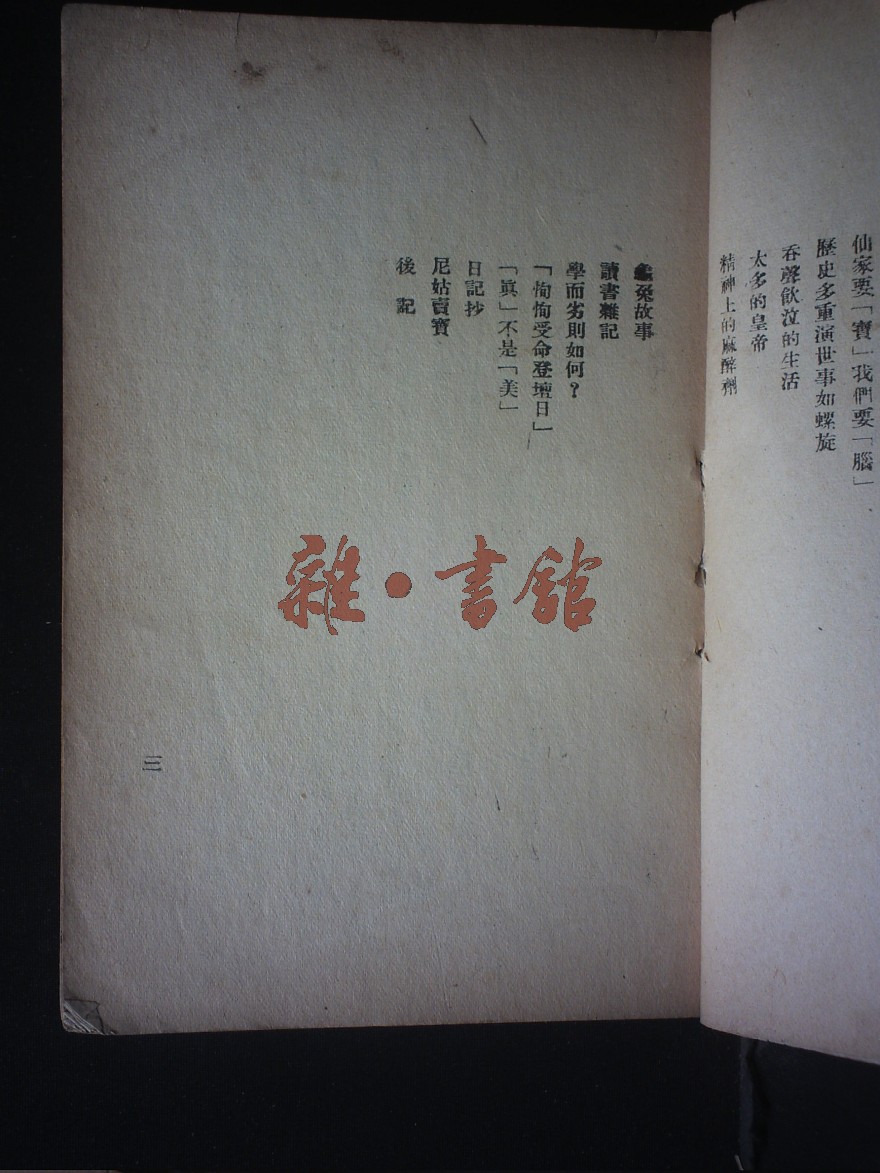 仙家要「寶」我們要「腦」
歷史多重演世事如螺旋
吞聲飲泣的生活
太多的皇帝
精神上的麻醉劑
龜兔故事
讀書雜記
學而劣則如何？
「恂恂受命登壇日」
「眞」不是「美」
日記抄
尼姑賣寶
後記
三
雜·書館